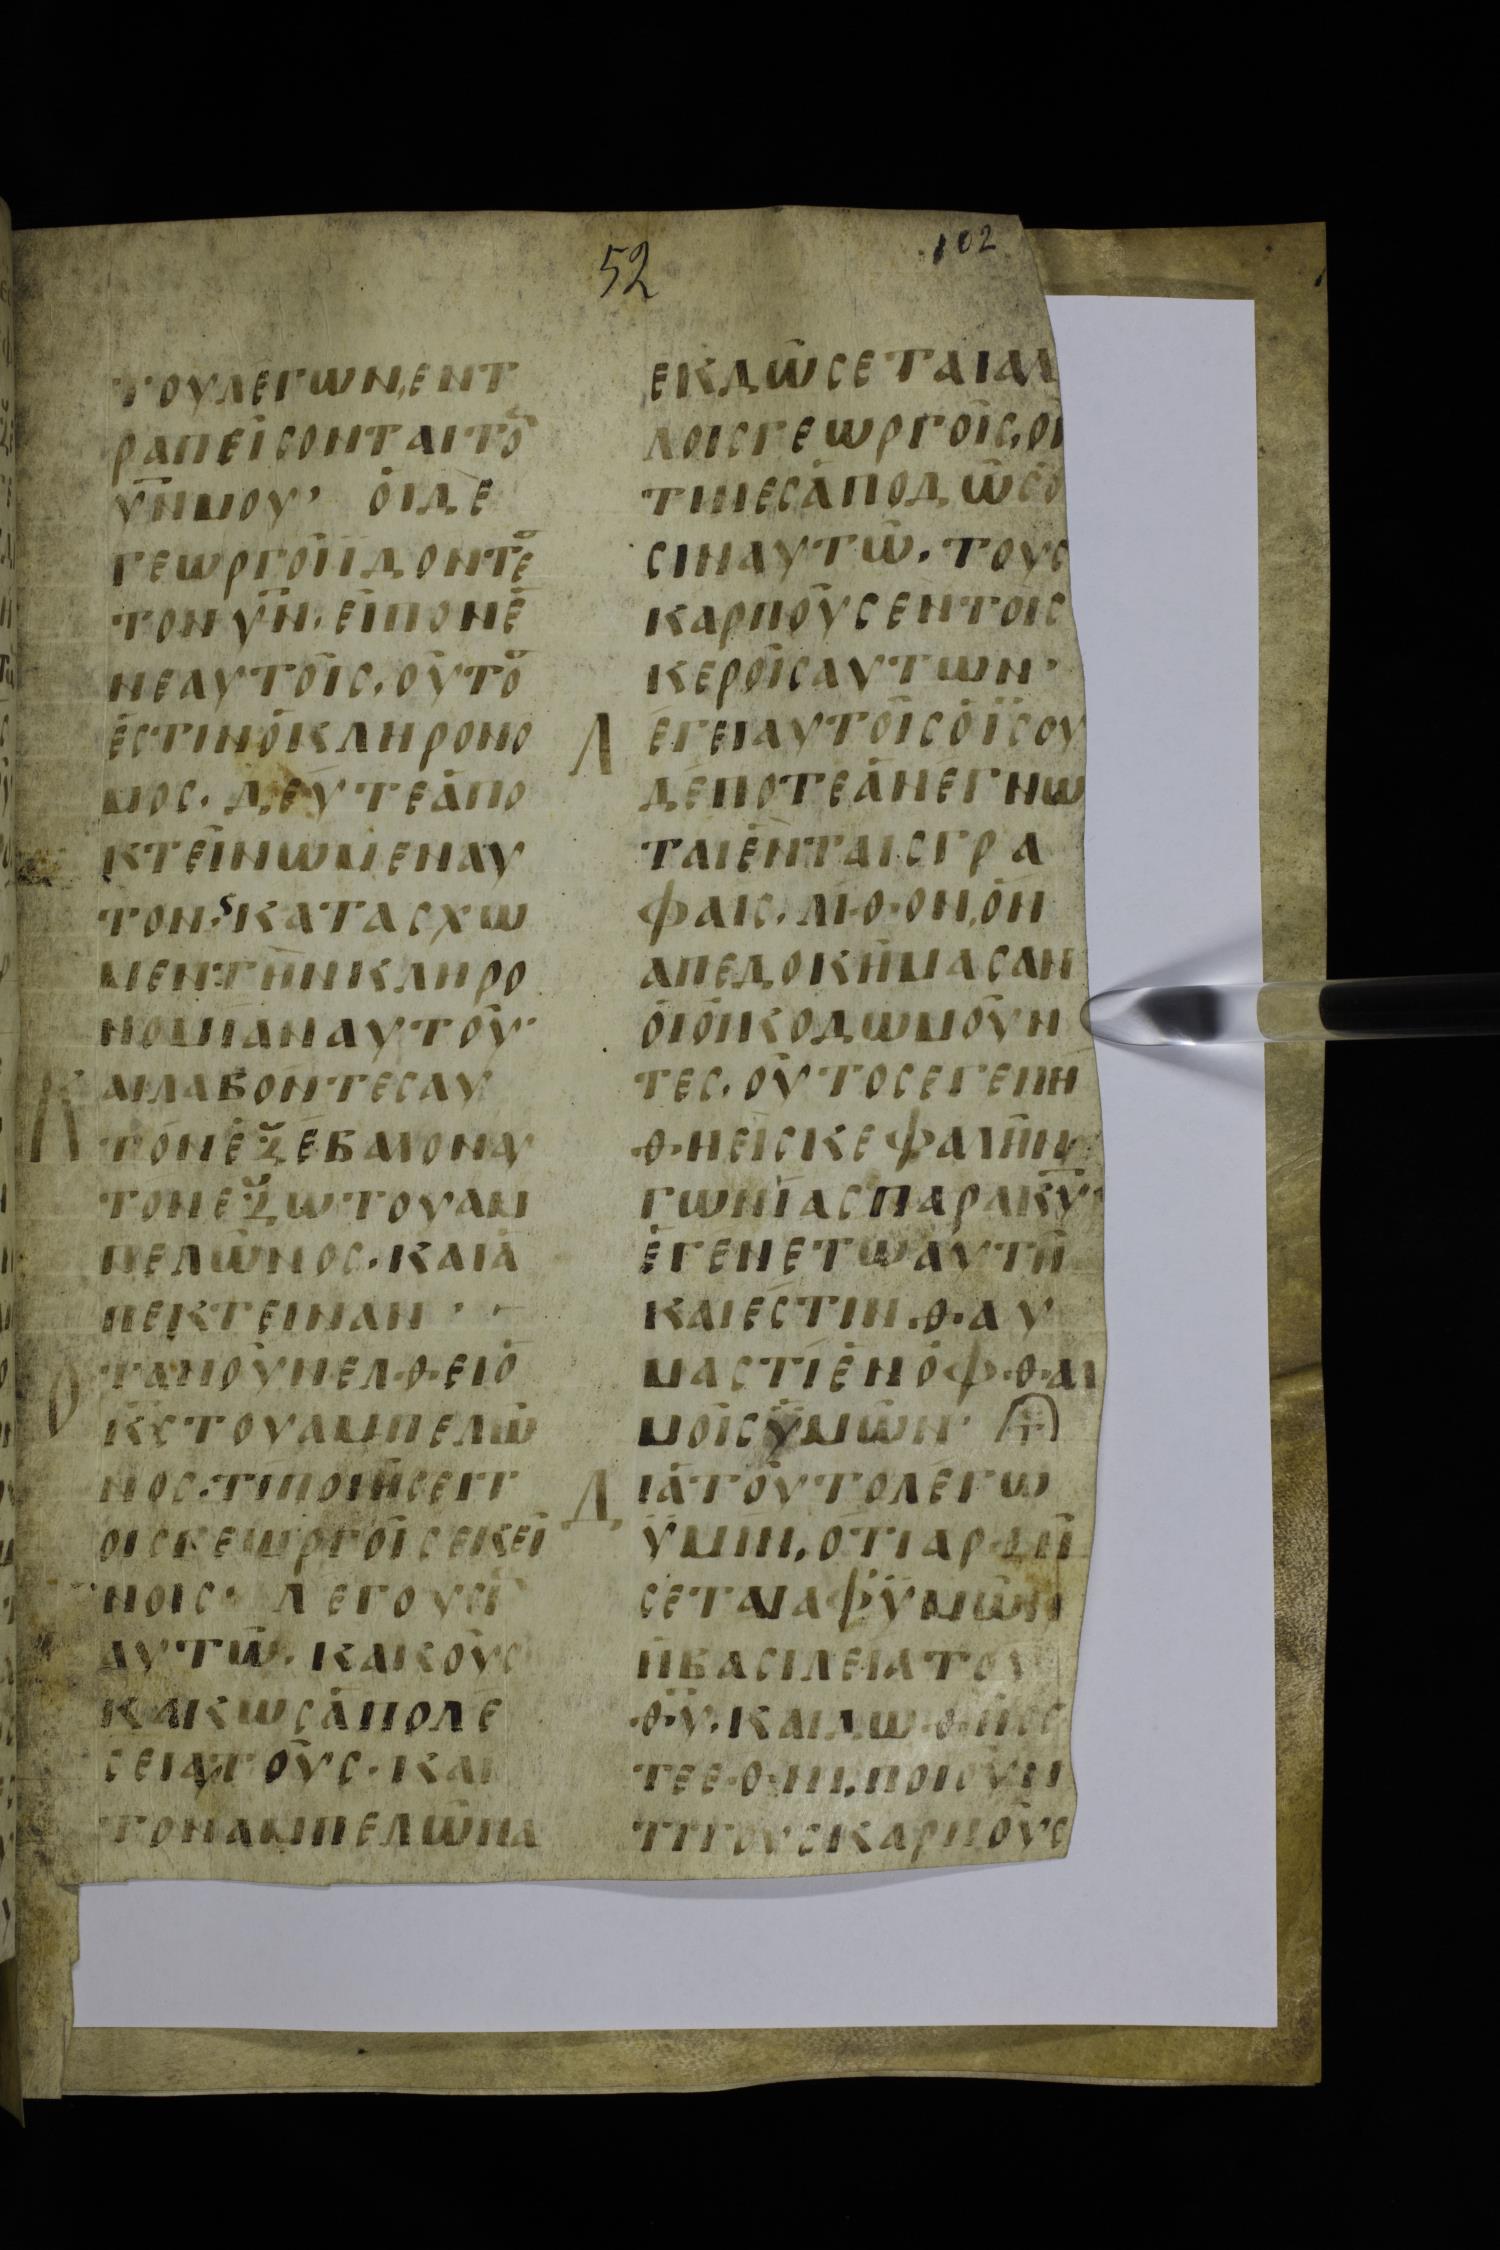 52
102
ΤΟΥΛΕΓΩΝ,ΕΝΤ
ΡΑΠΕΙΣΟΝΤΑΙΤΟ̄
ῩΝ̄ΜΟΥ· ΟΙΔΕ
ΓΕΩΡΓΟΙΪΔΟΝΤΕ̄
ΤΟΝῩΝ̄·ΕΙΠΟΝΕ̄
ΝΕΑΥΤΟΙΣ,ΟΥΤΟ
ΕΣΤΙΝΟΚΛΗΡΟΝΟ
ΜΟΣ·ΔΕΥΤΕΑΠΟ
ΚΤΕΙΝΩΜΕΝΑΥ
ΤΟΝ·ϚΚΑΤΑΣΧΩ
ΜΕΝΤΗΝΚΛΗΡΟ
ΝΟΜΙΑΝΑΥΤΟΥ·
ΚΑΙΛΑΒΟΝΤΕΣΑΥ
ΤΟΝΕΞΕΒΑΛΟΝΑΥ
ΤΟΝΕΞΩΤΟΥΑΜ
ΠΕΛΩΝΟΣ·ΚΑΙΑ
ΠΕΚΤΕΙΝΑΝ··
ΟΤΑΝΟΥΝΕΛΘΕΙΟ
Κ̄Σ̄ΤΟΥΑΜΠΕΛΩ
ΝΟΣ·ΤΙΠΟΙΗΣΕΙΤ
ΟΙΣΓΕΩΡΓΟΙΣΕΚΕΙ
ΝΟΙΣ· ΛΕΓΟΥΣΙ
ΑΥΤΩ·ΚΑΚΟΥΣ
ΚΑΚΩΣΑΠΟΛΕ
ΣΕΙΑΥΤΟΥΣ·ΚΑΙ
ΤΟΝΑΜΠΕΛΩΝΑ
ΕΚΔΩΣΕΤΑΙΑΛ
ΛΟΙΣΓΕΩΡΓΟΙΣ,ΟΙ
ΤΙΝΕΣΑΠΟΔΩΣΟ
ΣΙΝΑΥΤΩ·ΤΟΥΣ
ΚΑΡΠΟΥΣΕΝΤΟΙΣ
ΚΕΡΟΙΣΑΥΤΩΝ·
ΛΕΓΕΙΑΥΤΟΙΣΟῙΣ̄ΟΥ
ΔΕΠΟΤΕΑΝΕΓΝΩ
ΤΑΙΕΝΤΑΙΣΓΡΑ
ΦΑΙΣ,ΛΙΘΟΝ,ΟΝ
ΑΠΕΔΟΚΗΜΑΣΑΝ
ΟΙΟΙΚΟΔΩΜΟΥΝ
ΤΕΣ,ΟΥΤΟΣΕΓΕΝΗ
ΘΗΕΙΣΚΕΦΑΛΗΝ
ΓΩΝΙΑΣΠΑΡΑΚ̄Ῡ·
ΕΓΕΝΕΤΩΑΥΤΗ
ΚΑΙΕΣΤΙΝΘΑΥ
ΜΑΣΤΙΕΝΟΦΘΑΛ
ΜΟΙΣΫΜΩΝ·
ΔΙΑΤΟΥΤΟΛΕΓΩ
ΫΜΙΝ,ΟΤΙΑΡΔΗ
ΣΕΤΑΙΑΦΫΜΩΝ
ΗΒΑΣΙΛΕΙΑΤΟΥ
Θ̄Ῡ·ΚΑΙΔΩΘΗΣΕ
ΤΕΕΘΝΙ,ΠΟΙΟΥΝ
ΤΙΤΟΥΣΚΑΡΠΟΥΣ